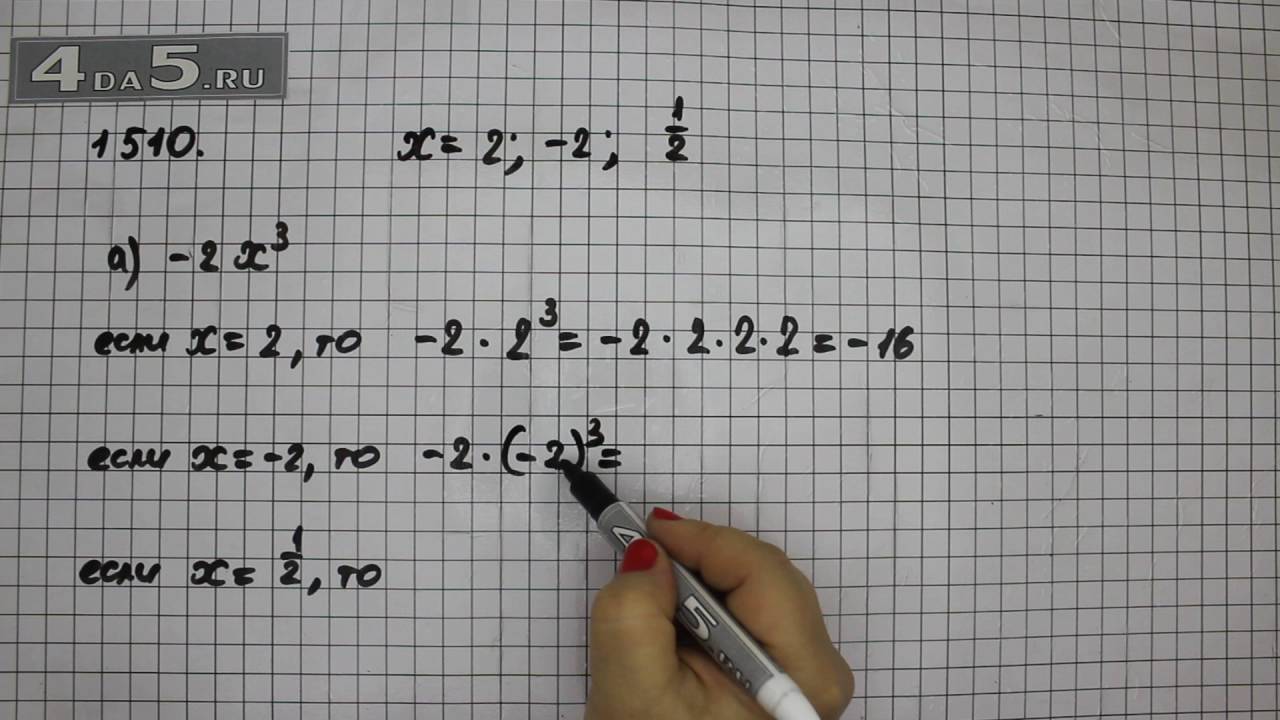 4DA5.RU
1510. x = 2; -2; 1/2
а) -2x³
если x = 2, то -2 · 2³ = -2 · 2 · 2 · 2 = -16
если x = -2, то -2 · (-2)³ =
если x = 1/2, то